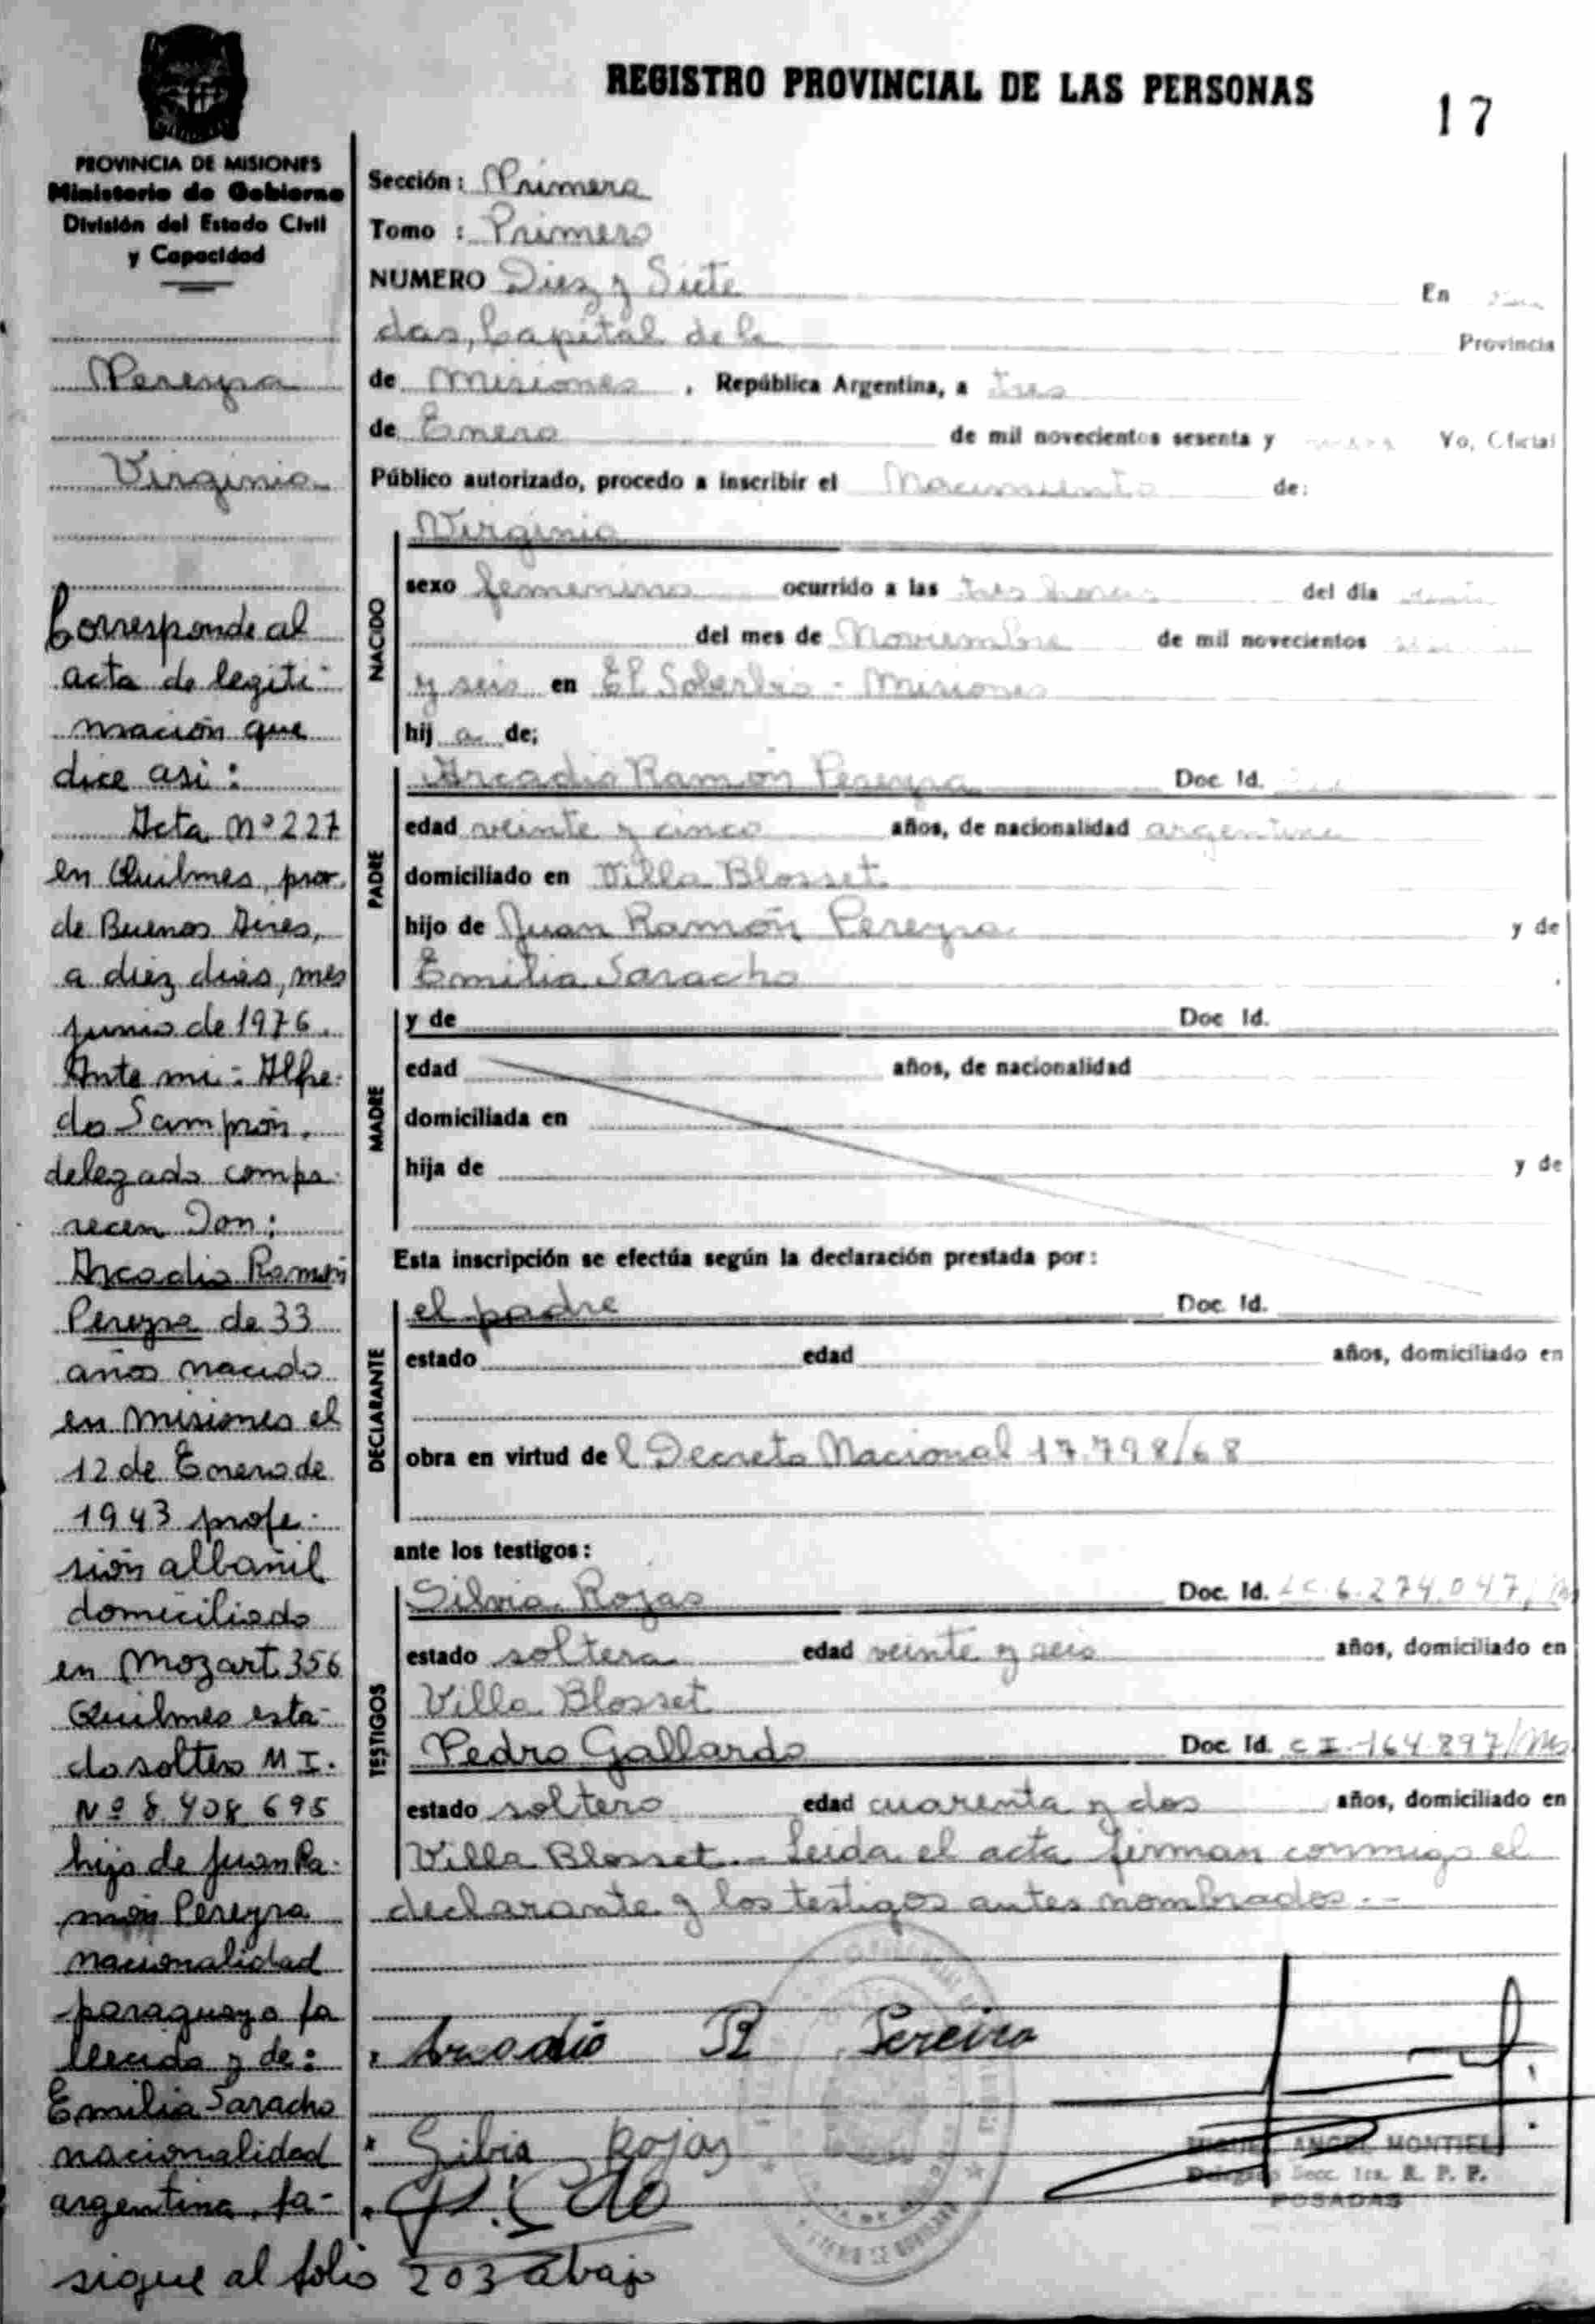 REGISTRO PROVINCIAL DE LAS PERSONAS
17
PROVINCIA DE MISIONES
Ministerio de Gobierno
División del Estado Civil
y Capacidad
Pereyra
Virginia
Corresponde al
acta de legiti-
mación que
dice asi:
Acta Nº 227
en Quilmes, prov.
de Buenos Aires,
a diez dias, mes
junio de 1976.
Ante mi: Alfre-
do Sampron,
delegado compa-
recen Don:
Arcadio Ramón
Pereyra de 33
años nacido
en Misiones el
12 de Enero de
1943 profe-
sión albañil
domiciliado
en Mozart 356
Quilmes esta-
do soltero M I.
Nº 8.408.695
hijo de Juan Ra-
món Pereyra
nacionalidad
paraguaya fa
llecido y de:
Emilia Saracho
nacionalidad
argentina, fa-
sigue al folio 203 abajo
Sección: Primera
Tomo : Primero
NUMERO Diez y Siete En
das, Capital de la Provincia
de Misiones, República Argentina, a tres
de Enero de mil novecientos sesenta y Yo, Oficial
Público autorizado, procedo a inscribir el Nacimiento de:
NACIDO
Virginia
sexo femenino ocurrido a las tres horas del dia
del mes de Noviembre de mil novecientos
y seis en El Soberbio - Misiones
hij a de;
PADRE
Arcadio Ramón Pereyra Doc. Id.
edad veinte y cinco años, de nacionalidad argentina
domiciliado en Villa Blosset
hijo de Juan Ramón Pereyra y de
Emilia Saracho
MADRE
y de Doc Id.
edad años, de nacionalidad
domiciliada en
hija de y de
Esta inscripción se efectúa según la declaración prestada por:
DECLARANTE
el padre Doc. Id.
estado edad años, domiciliado en
obra en virtud de l Decreto Nacional 17.798/68
ante los testigos:
TESTIGOS
Silvia Rojas Doc. Id. LC. 6.274.047/
estado soltera edad veinte y seis años, domiciliado en
Villa Blosset
Pedro Gallardo Doc. Id. C I. 164.897/Ms
estado soltero edad cuarenta y dos años, domiciliado en
Villa Blosset.- Leida el acta firman conmigo el
declarante y los testigos antes nombrados.-
Arcadio R Pereira
Silvia Rojas
MIGUEL ANGEL MONTIEL
Delegado Secc. 1ra. R. P. P.
POSADAS